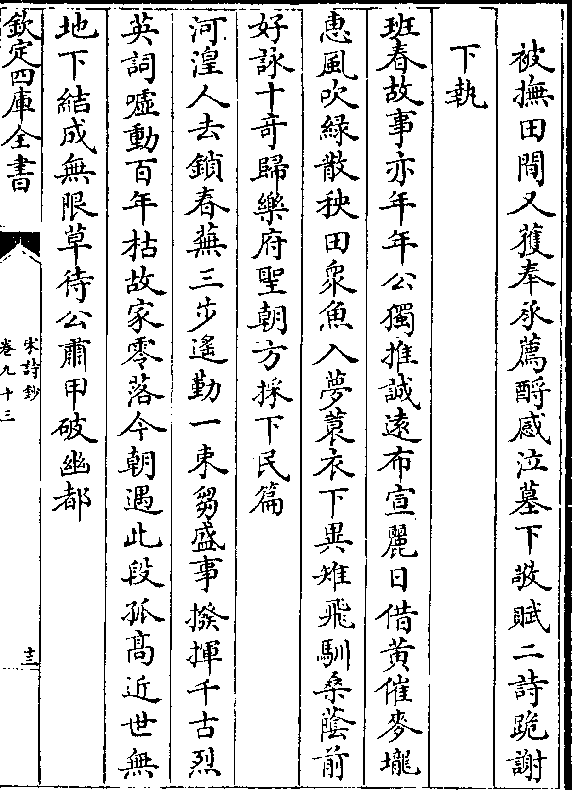 被撫田間又獲奉承薦酹感泣墓下敬賦二詩跪謝
下執
班春故事亦年年公獨推誠遠布宣麗日借黄催麥壠
惠風吹緑散秧田衆魚入夢蓑衣下異雉飛馴桑蔭前
好詠十竒歸樂府聖朝方採下民篇
河湟人去鎖春蕪三步遙勤一束芻盛事撥揮千古烈
英詞嘘動百年枯故家零落今朝遇此段孤髙近世無
地下結成無限草待公肅甲破幽都
欽定四庫全書
宋詩鈔
卷九十三
十三